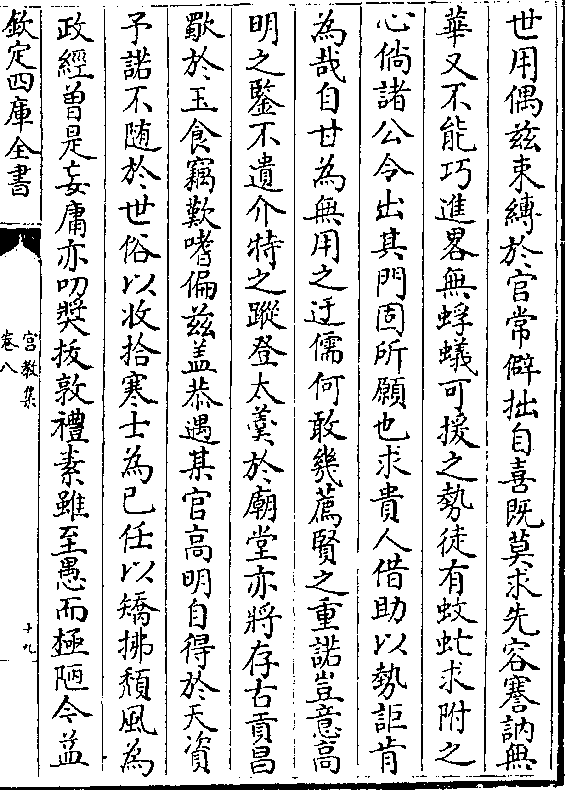 世用偶兹束縛於官常僻拙自喜既莫求先容謇訥無
華又不能巧進畧無蜉蟻可援之勢徒有蚊虻求附之
心倘諸公令出其門固所願也求貴人借助以勢詎肯
為哉自甘為無用之迂儒何敢幾薦賢之重諾豈意高
明之鑒不遺介特之蹤登太羮於廟堂亦將存古貢昌
歜於玉食竊歎嗜偏兹盖恭遇某官高明自得於天資
予諾不随於世俗以收拾寒士為己任以矯拂頽風為
政經曽是妄庸亦叨奬拔敦禮素雖至愚而極陋今益
欽定四庫全書
宫教集
卷八
十九